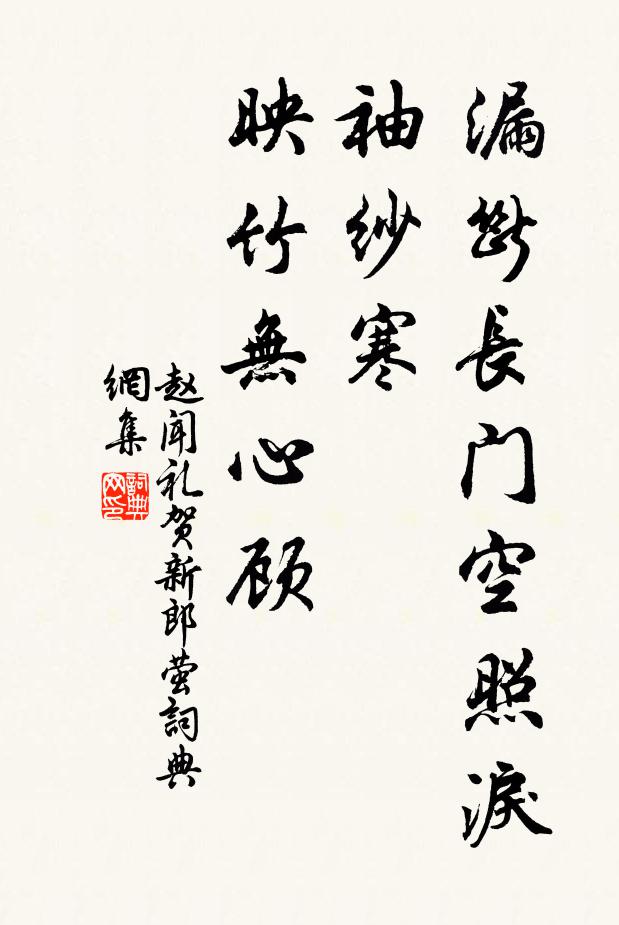 漏斷長门空照淚
袖纱寒
映竹無心顾
赵闻礼贺新郎萤詞典
網集
詞典网印